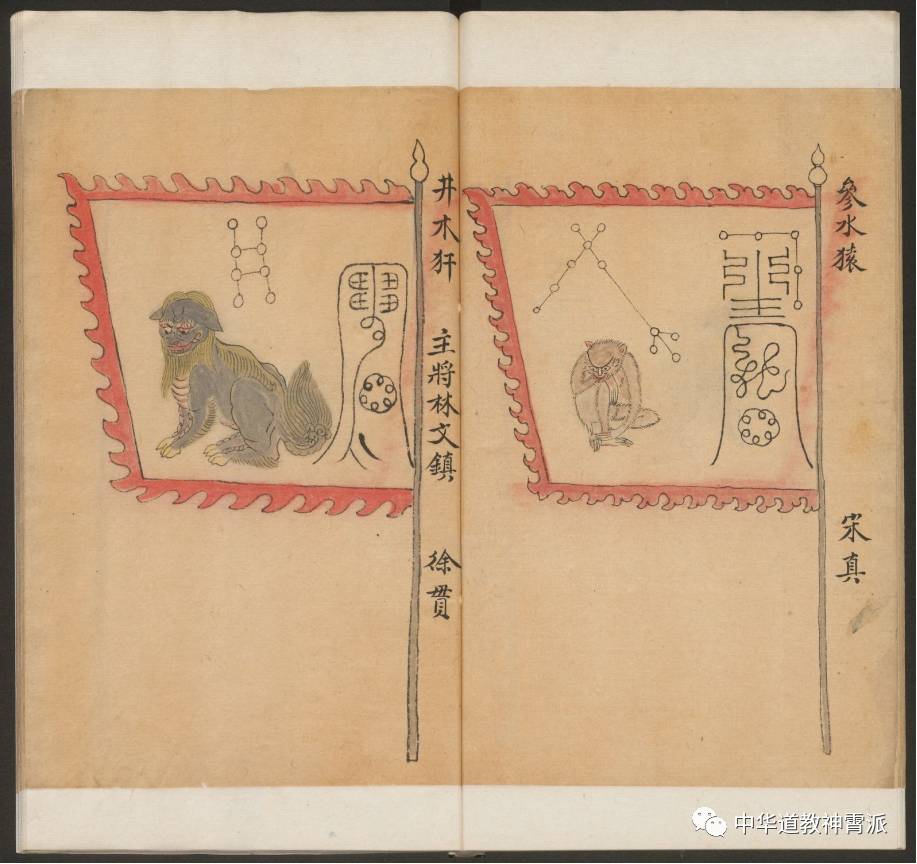 參水猿
宋真
井木犴
主將林文鎮
徐貫
中华道教神霄派